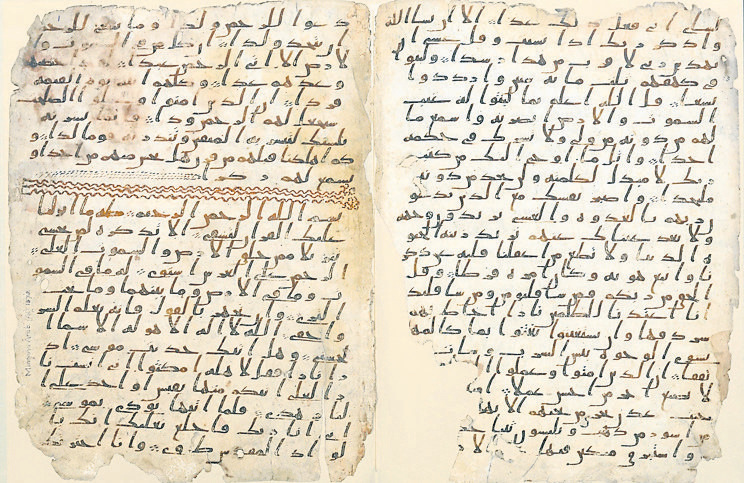 لشاي اني فاعل ذلك غدا الا ان يشا الله
واذكر ربك اذا نسيت وقل عسى ا
يهدين ربي لاقرب من هذا رشدا ولبثوا
في كهفهم ثلث مائة سنين وازدادوا
تسعا قل الله اعلم بما لبثوا له غيب
السموت والارض ابصر به واسمع ما
لهم من دونه من ولي ولا يشرك في حكمه
احدا واتل ما اوحي اليك من كتب
ربك لا مبدل لكلمته ولن تجد من دونه
ملتحدا واصبر نفسك مع الذين يدعو
ربهم بالغدوة والعشي يريدون وجهه
ولا تعد عيناك عنهم تريد زينة الحيو
ة الدنيا ولا تطع من اغفلنا قلبه عن ذكر
نا واتبع هويه وكان امره فرطا وقل
الحق من ربكم فمن شا فليومن ومن شا فليكفر
انا اعتدنا للظلمين نارا احاط بهم
سردقها وان يستغيثوا يغثوا بما كالمهل
يشوي الوجوه بئس الشرب وسات
مرتفقا ان الذين امنوا وعملوا
لا نضيع اجر من احسن عملا
جنت عدن تجري من تحتهم الانهر
من اسور من ذهب ويلبسون ثيبا خضر
واستبرق متكين فيها على الارا
دعوا للرحمن ولدا وما ينبغي للرحمن
ان يتخذ ولدا ان كل من في السموت وا
لارض الا اتي الرحمن عبدا لقد احصهم
وعدهم عدا وكلهم اتيه يوم القيمة
فردا ان الذين امنوا وعملوا الصلحت
سيجعل لهم الرحمن ودا فانما يسرنه
بلسنك لتبشر به المتقين وتنذر به قوما لدا و
كم اهلكنا قبلهم من قرن هل تحس منهم من احد او
تسمع لهم ركزا
بسم الله الرحمن الرحيم طه ما انزلنا
عليك القران لتشقى الا تذكرة لمن يخشى
تنزيلا ممن خلق الارض والسموت العلى
الرحمن على العرش استوى له ما في السمو
ت وما في الارض وما بينهما وما تحت
الثرى وان تجهر بالقول فانه يعلم السر
واخفى الله لا اله الا هو له الاسما
الحسنى وهل اتيك حديث موسى اذ
را نارا فقل لاهله امكثوا اني انست نا
را لعلي اتيكم منها بقبس او اجد على ا
لنار هدى فلما اتيها نودي يموسى
اني انا ربك فاخلع نعليك انك با
لواد المقدس طوى وانا اخترتك